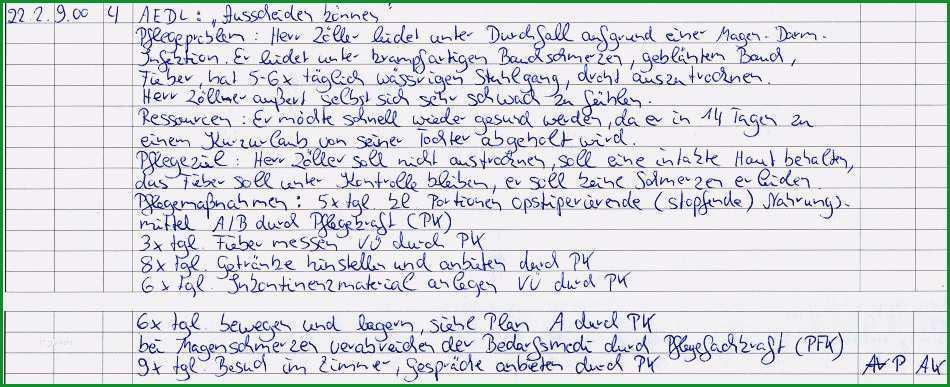 22.2. 9.00 4 AEDL: „Ausscheiden können"
Pflegeproblem: Herr Zöller leidet unter Durchfall aufgrund einer Magen-Darm-
Infektion. Er leidet unter krampfartigen Bauchschmerzen, geblähtem Bauch,
Fieber, hat 5-6x täglich wässrigen Stuhlgang, droht auszutrocknen.
Herr Zöllner äußert selbst sich sehr schwach zu fühlen.
Ressourcen: Er möchte schnell wieder gesund werden, da er in 14 Tagen zu
einem Kurzurlaub von seiner Tochter abgeholt wird.
Pflegeziel: Herr Zöller soll nicht austrocknen, soll eine intakte Haut behalten,
das Fieber soll unter Kontrolle bleiben, er soll keine Schmerzen erleiden.
Pflegemaßnahmen: 5x tgl. kl Portionen opstipierende (stopfende) Nahrungs-
mittel A/B durch Pflegekraft (PK)
3x tgl. Fieber messen VÜ durch PK
8x tgl. Getränke hinstellen und anbieten durch PK
6x tgl. Inkontinenzmaterial anlegen VÜ durch PK
6x tgl. bewegen und lagern, siehe Plan A durch PK
bei Magenschmerzen verabreichen der Bedarfsmedi durch Pflegefachkraft (PFK)
9x tgl. Besuch im Zimmer, Gespräche anbieten durch PK P AK